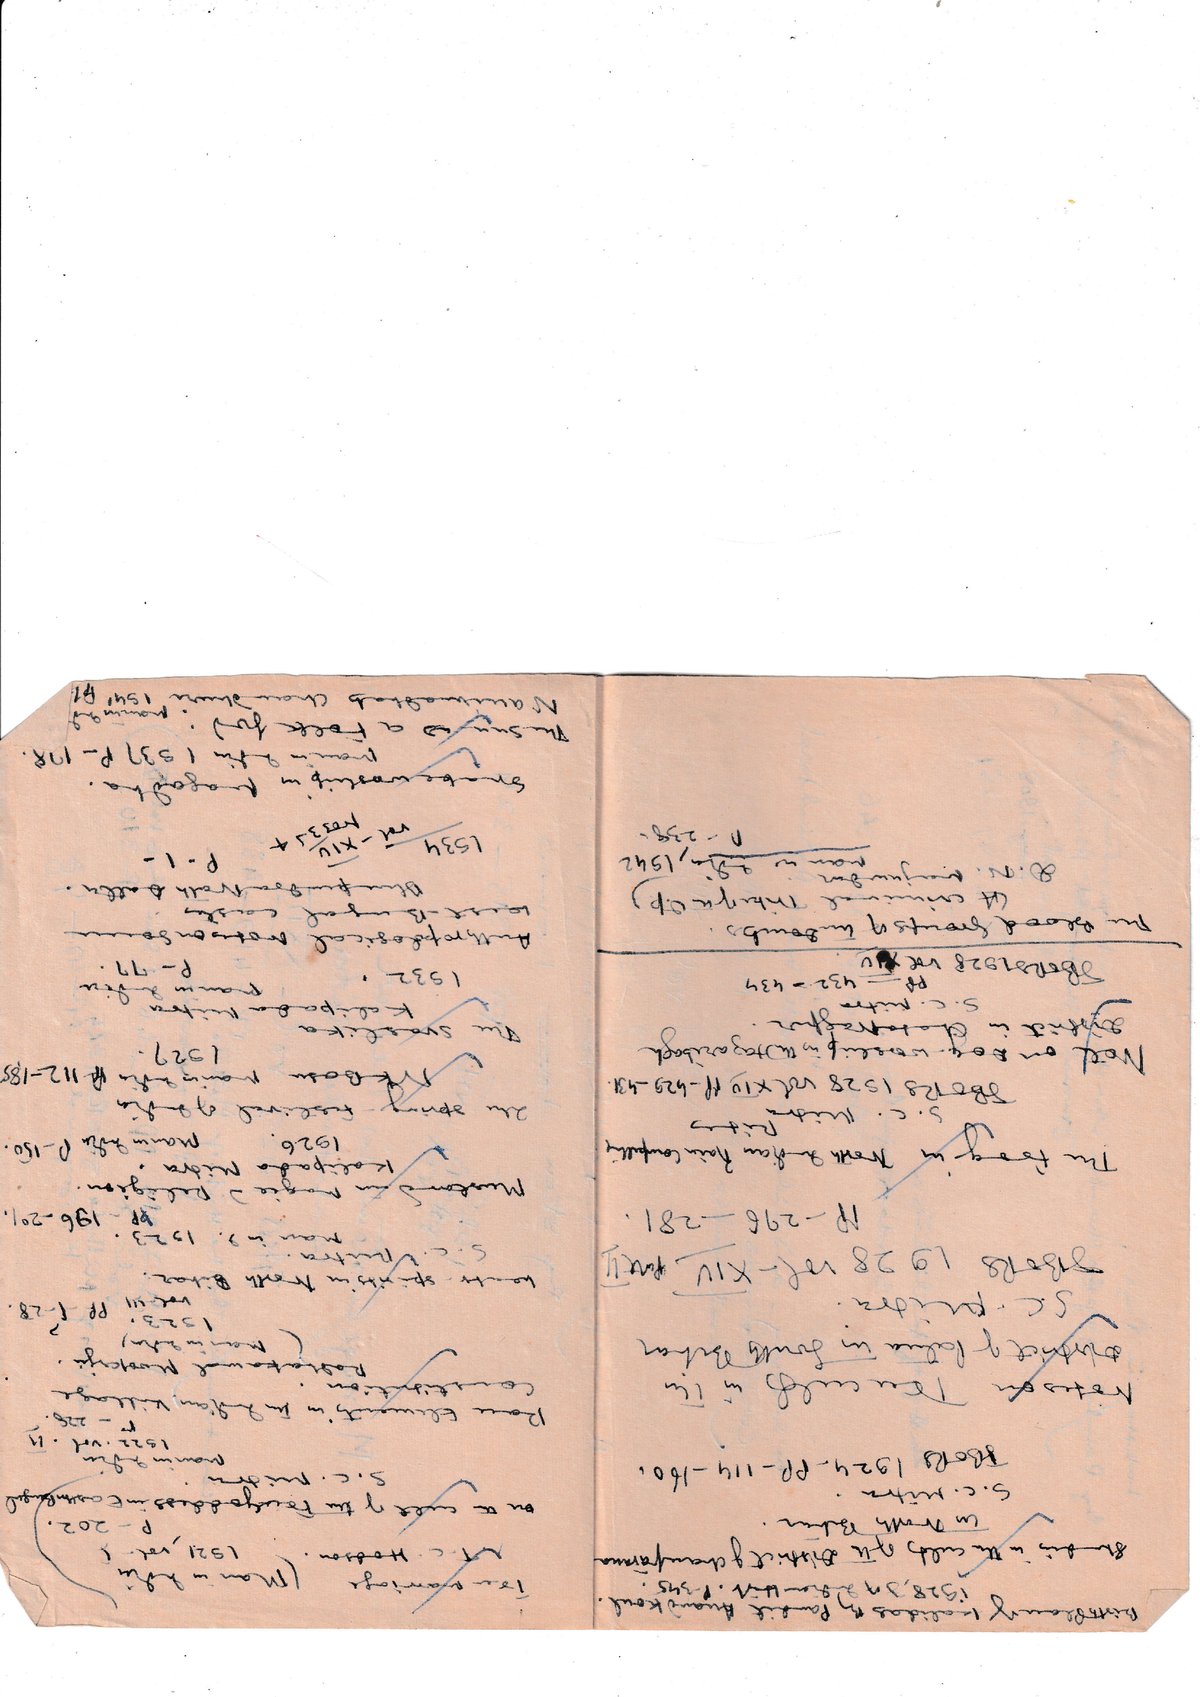 Birth Place of Kalidas by Pandit Anand Koul.
1928, J of Indian Hist. P-345.
Studies in the cults of the District of Champaran
in North Bihar.
S.C. Mitra
JBORS 1924 PP-114-160.
Notes on Tree cults in the
District of Patna in South Bihar
S.C. Mitra.
JBORS 1928 vol-XIV Part II
PP-276-281.
The Frog in North Indian Rain Compelling
Rites
S.C. Mitra
JBORS 1928 vol XIV PP-429-431.
Note on Dog-worship in the Hazaribagh
District in Chotanagpur.
S.C. Mitra
PP-432-434
JBORS 1928 vol XIV
The Blood Groups of the Dombs.
(A criminal Tribe of the U.P)
D.N. Majumdar
Man in India, 1942
P-238.
Tree marriage (Man in India
T.C. Hodson. 1921, vol-1
P-202.
on a cult of the Tree Goddess in Eastern Bengal
S.C. Mitra
Man in India
1922. Vol. II
P-228.
Race Elements in the Indian Village
Constitution.
Radhakamal Mookerji.
(Man in India)
1923.
Vol III PP 1-28.
Trees-spirits in North Bihar.
S.C. Mitra.
Man in I. 1923.
PP-196-201.
Mustard in Magic & Religion.
Kalipada Mitra.
1926. Man in India P-150.
The Spring-Festival of India
N.K. Basu Man in India PP 112-185
1927.
The Svastika
Kalipada Mitra
Man in India
1932. P-77.
Anthropological Notes on Some
West-Bengal castes
Bhupendra Nath Datta.
P-1-
1934 Vol-XIV Nos 3 & 4
Snake worship in Magadha.
Man in India 1937 P-178.
The Sun as a Folk God. Man in Ind
Nanimadhab Chaudhuri 1941
P1.